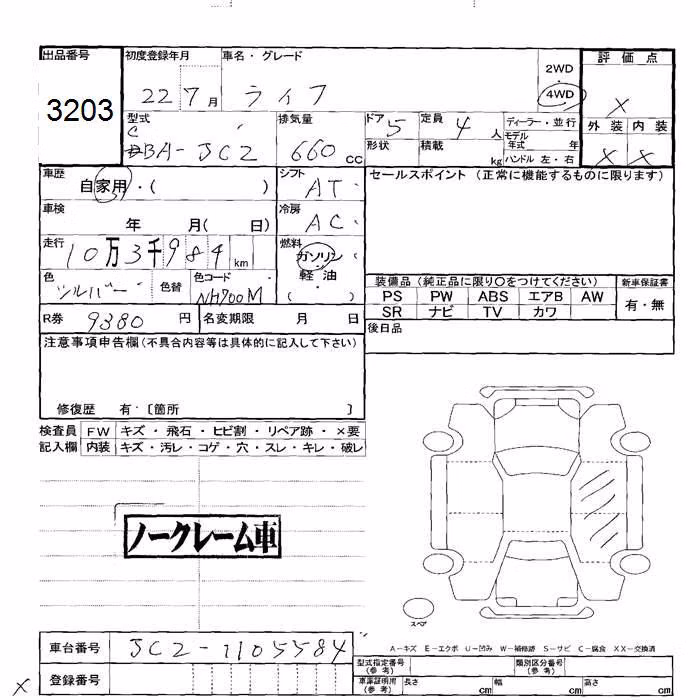 出品番号 初度登録年月 車名・グレード 評価点
3203 22 7月 ライフ 2WD・4WD X
型式 排気量 ドア 定員 ディーラー・並行 外装 内装
CBA-JC2 660cc 5 4人 モデル年式 年 X X
形状 積載 kg ハンドル 左・右
車歴 自家用・( ) シフト AT セールスポイント (正常に機能するものに限ります)
車検 年 月( 日) 冷房 AC
走行 10万3千984km 燃料 ガソリン 軽油 ( )
色 シルバー 色替 色コード NH700M
装備品 (純正品に限り〇をつけてください) 新車保証書
PS PW ABS エアB AW 有・無
SR ナビ TV カワ
R券 9380円 名変期限 月 日 後日品
注意事項申告欄(不具合内容等は具体的に記入して下さい)
修復歴 有・〔箇所 〕
検査員 FW キズ・飛石・ヒビ割・リペア跡・×要
記入欄 内装 キズ・汚レ・コゲ・穴・スレ・キレ・破レ
ノークレーム車
スペア
A-キズ E-エクボ U-凹み W-補修跡 S-サビ C-腐食 XX-交換済
車台番号 JC2-1105584 型式指定番号(参考) 類別区分番号(参考)
X 登録番号 車庫証明用(参考) 長さ cm 幅 cm 高さ cm